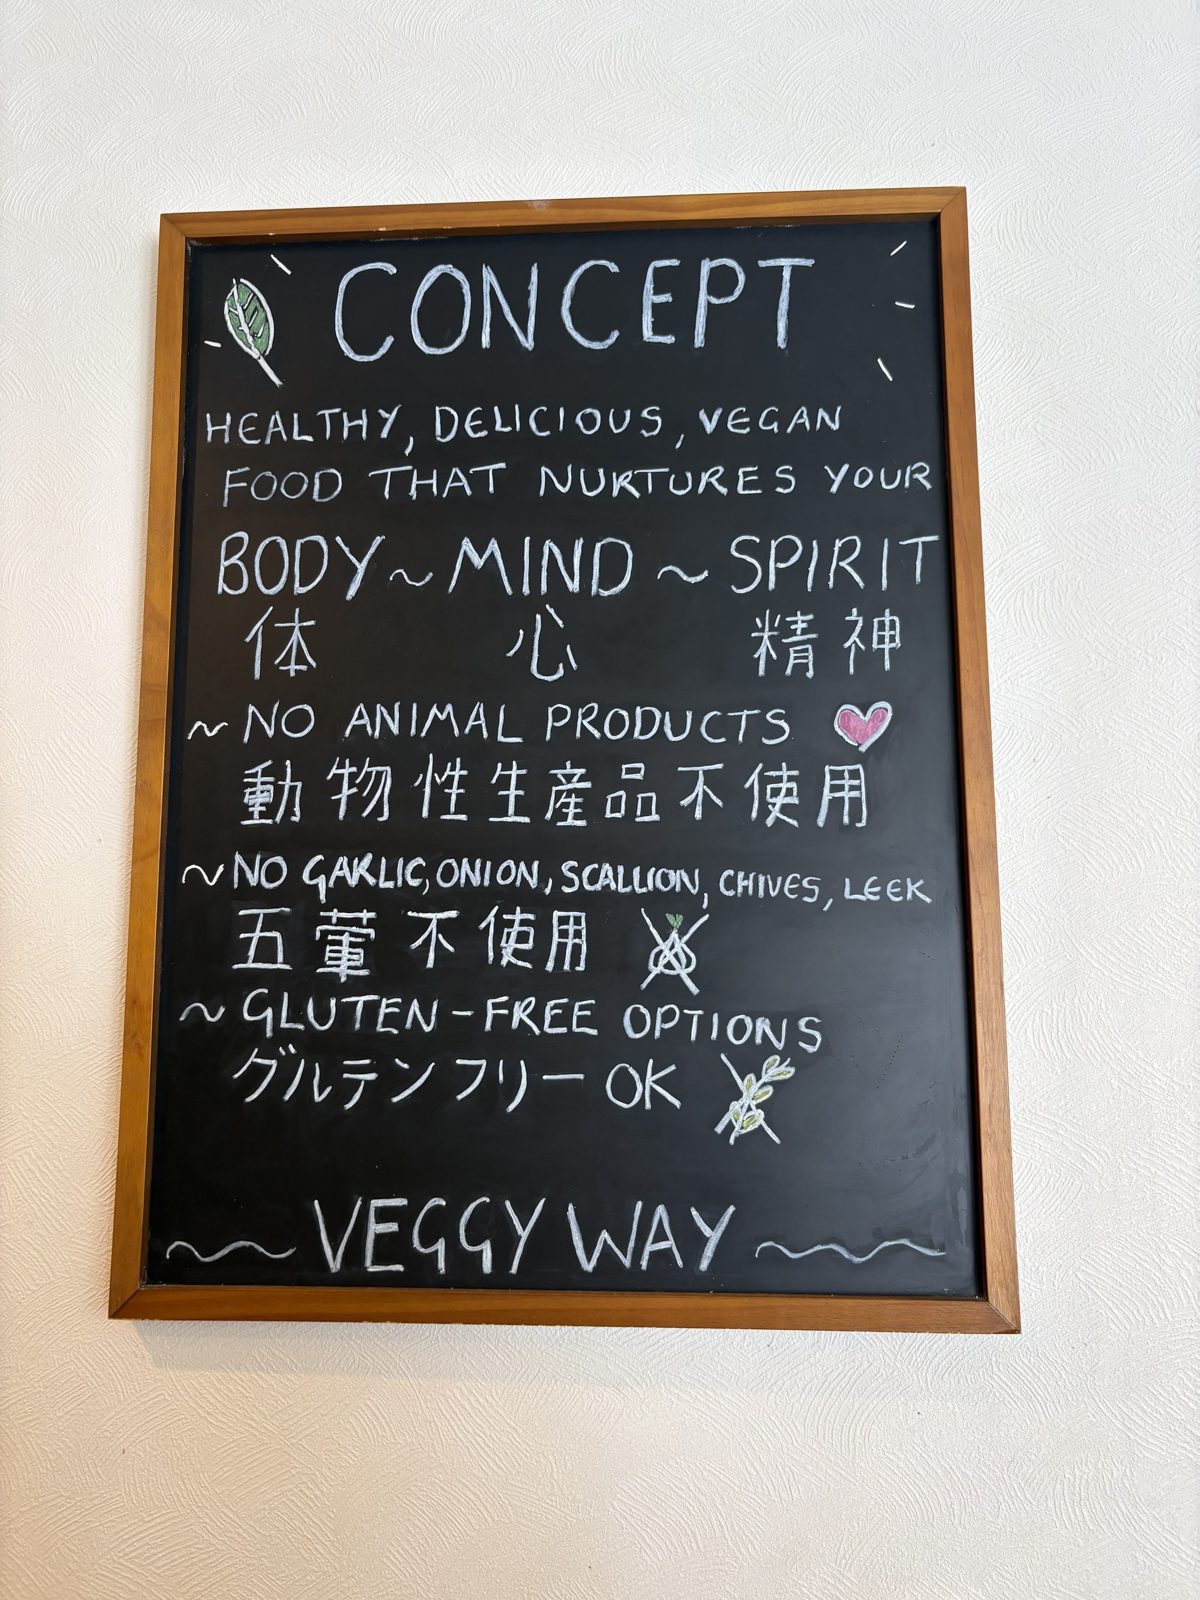 CONCEPT
HEALTHY, DELICIOUS, VEGAN
FOOD THAT NURTURES YOUR
BODY ~ MIND ~ SPIRIT
体 心 精神
~ NO ANIMAL PRODUCTS
動物性生産品不使用
~ NO GARLIC, ONION, SCALLION, CHIVES, LEEK
五葷不使用
~ GLUTEN-FREE OPTIONS
グルテンフリー OK
VEGGY WAY